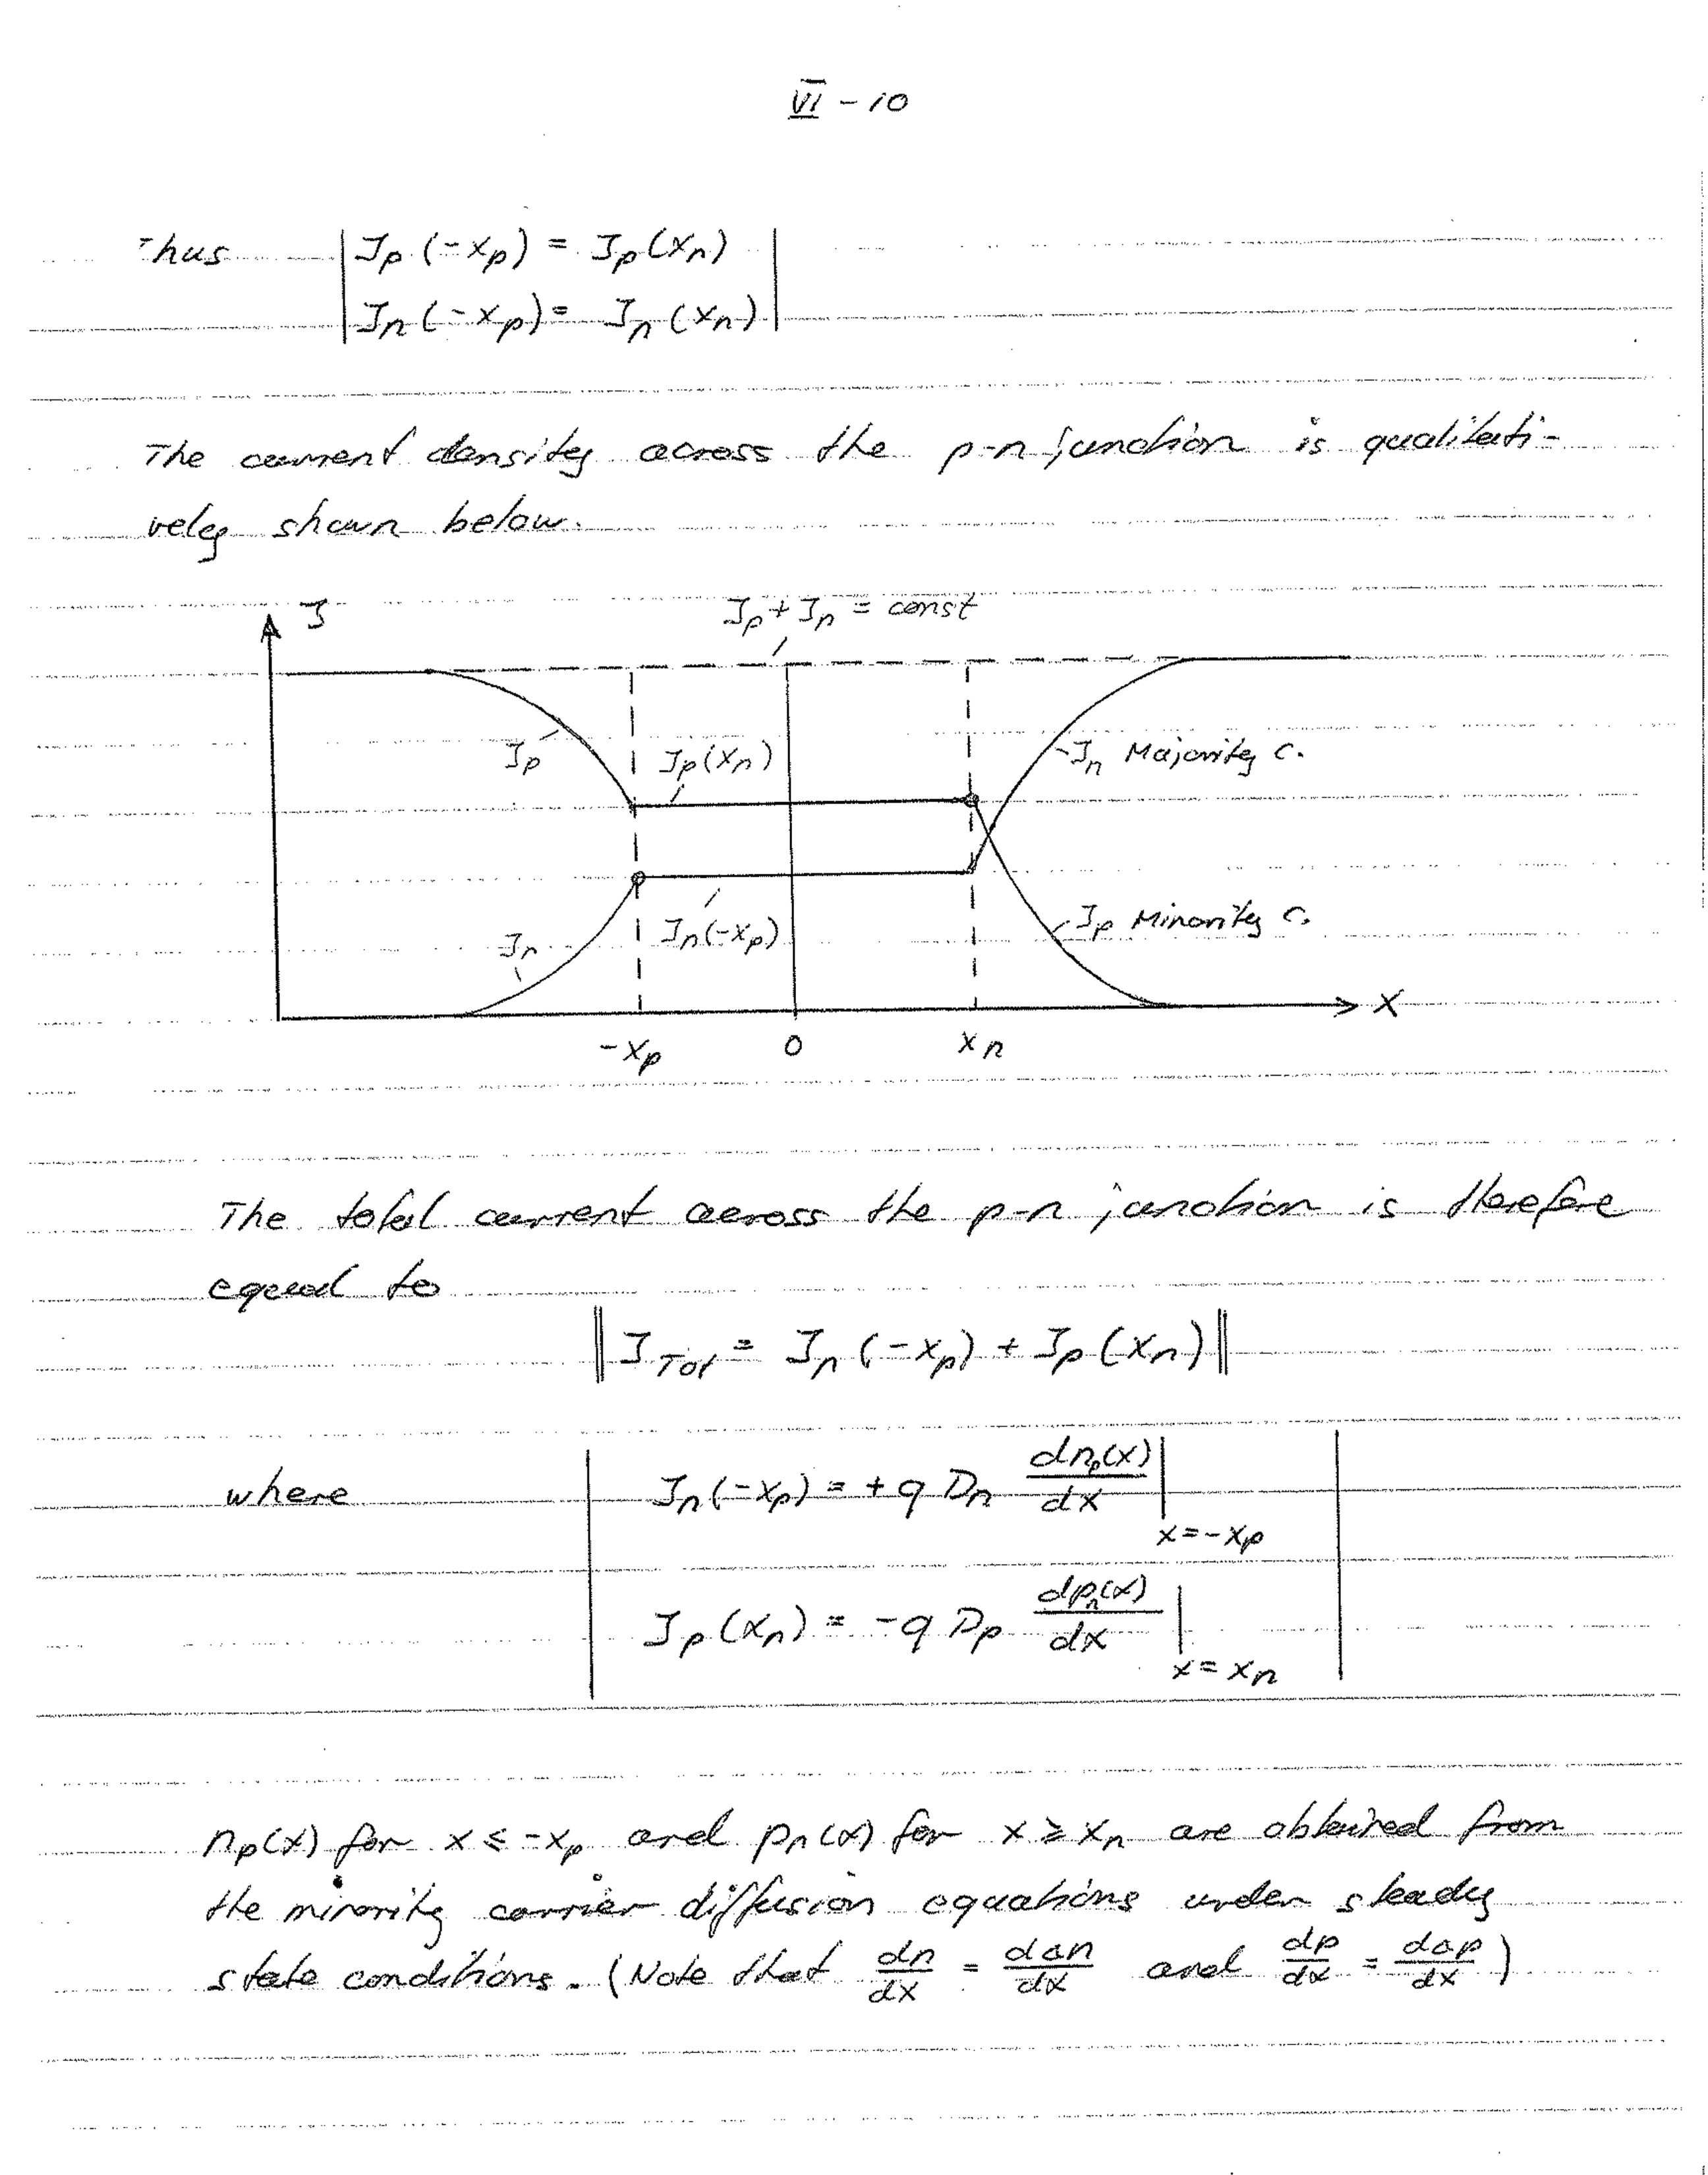 VI - 10
Thus Jp (-xp) = Jp (xn)
Jn (-xp) = Jn (xn)
The current density across the p-n junction is qualitati-
vely shown below.
J
Jp + Jn = const
Jp
Jp (xn)
Jn Majority C.
Jn
Jn (-xp)
Jp Minority C.
-xp 0 xn
x
The total current across the p-n junction is therefore
equal to
J Tot = Jn (-xp) + Jp (xn)
where Jn (-xp) = + q Dn dnp(x)/dx | x = -xp
Jp (xn) = - q Dp dpn(x)/dx | x = xn
np(x) for x ≤ -xp and pn(x) for x ≥ xn are obtained from
the minority carrier diffusion equations under steady
state conditions. (Note that dn/dx = dΔn/dx and dp/dx = dΔp/dx )